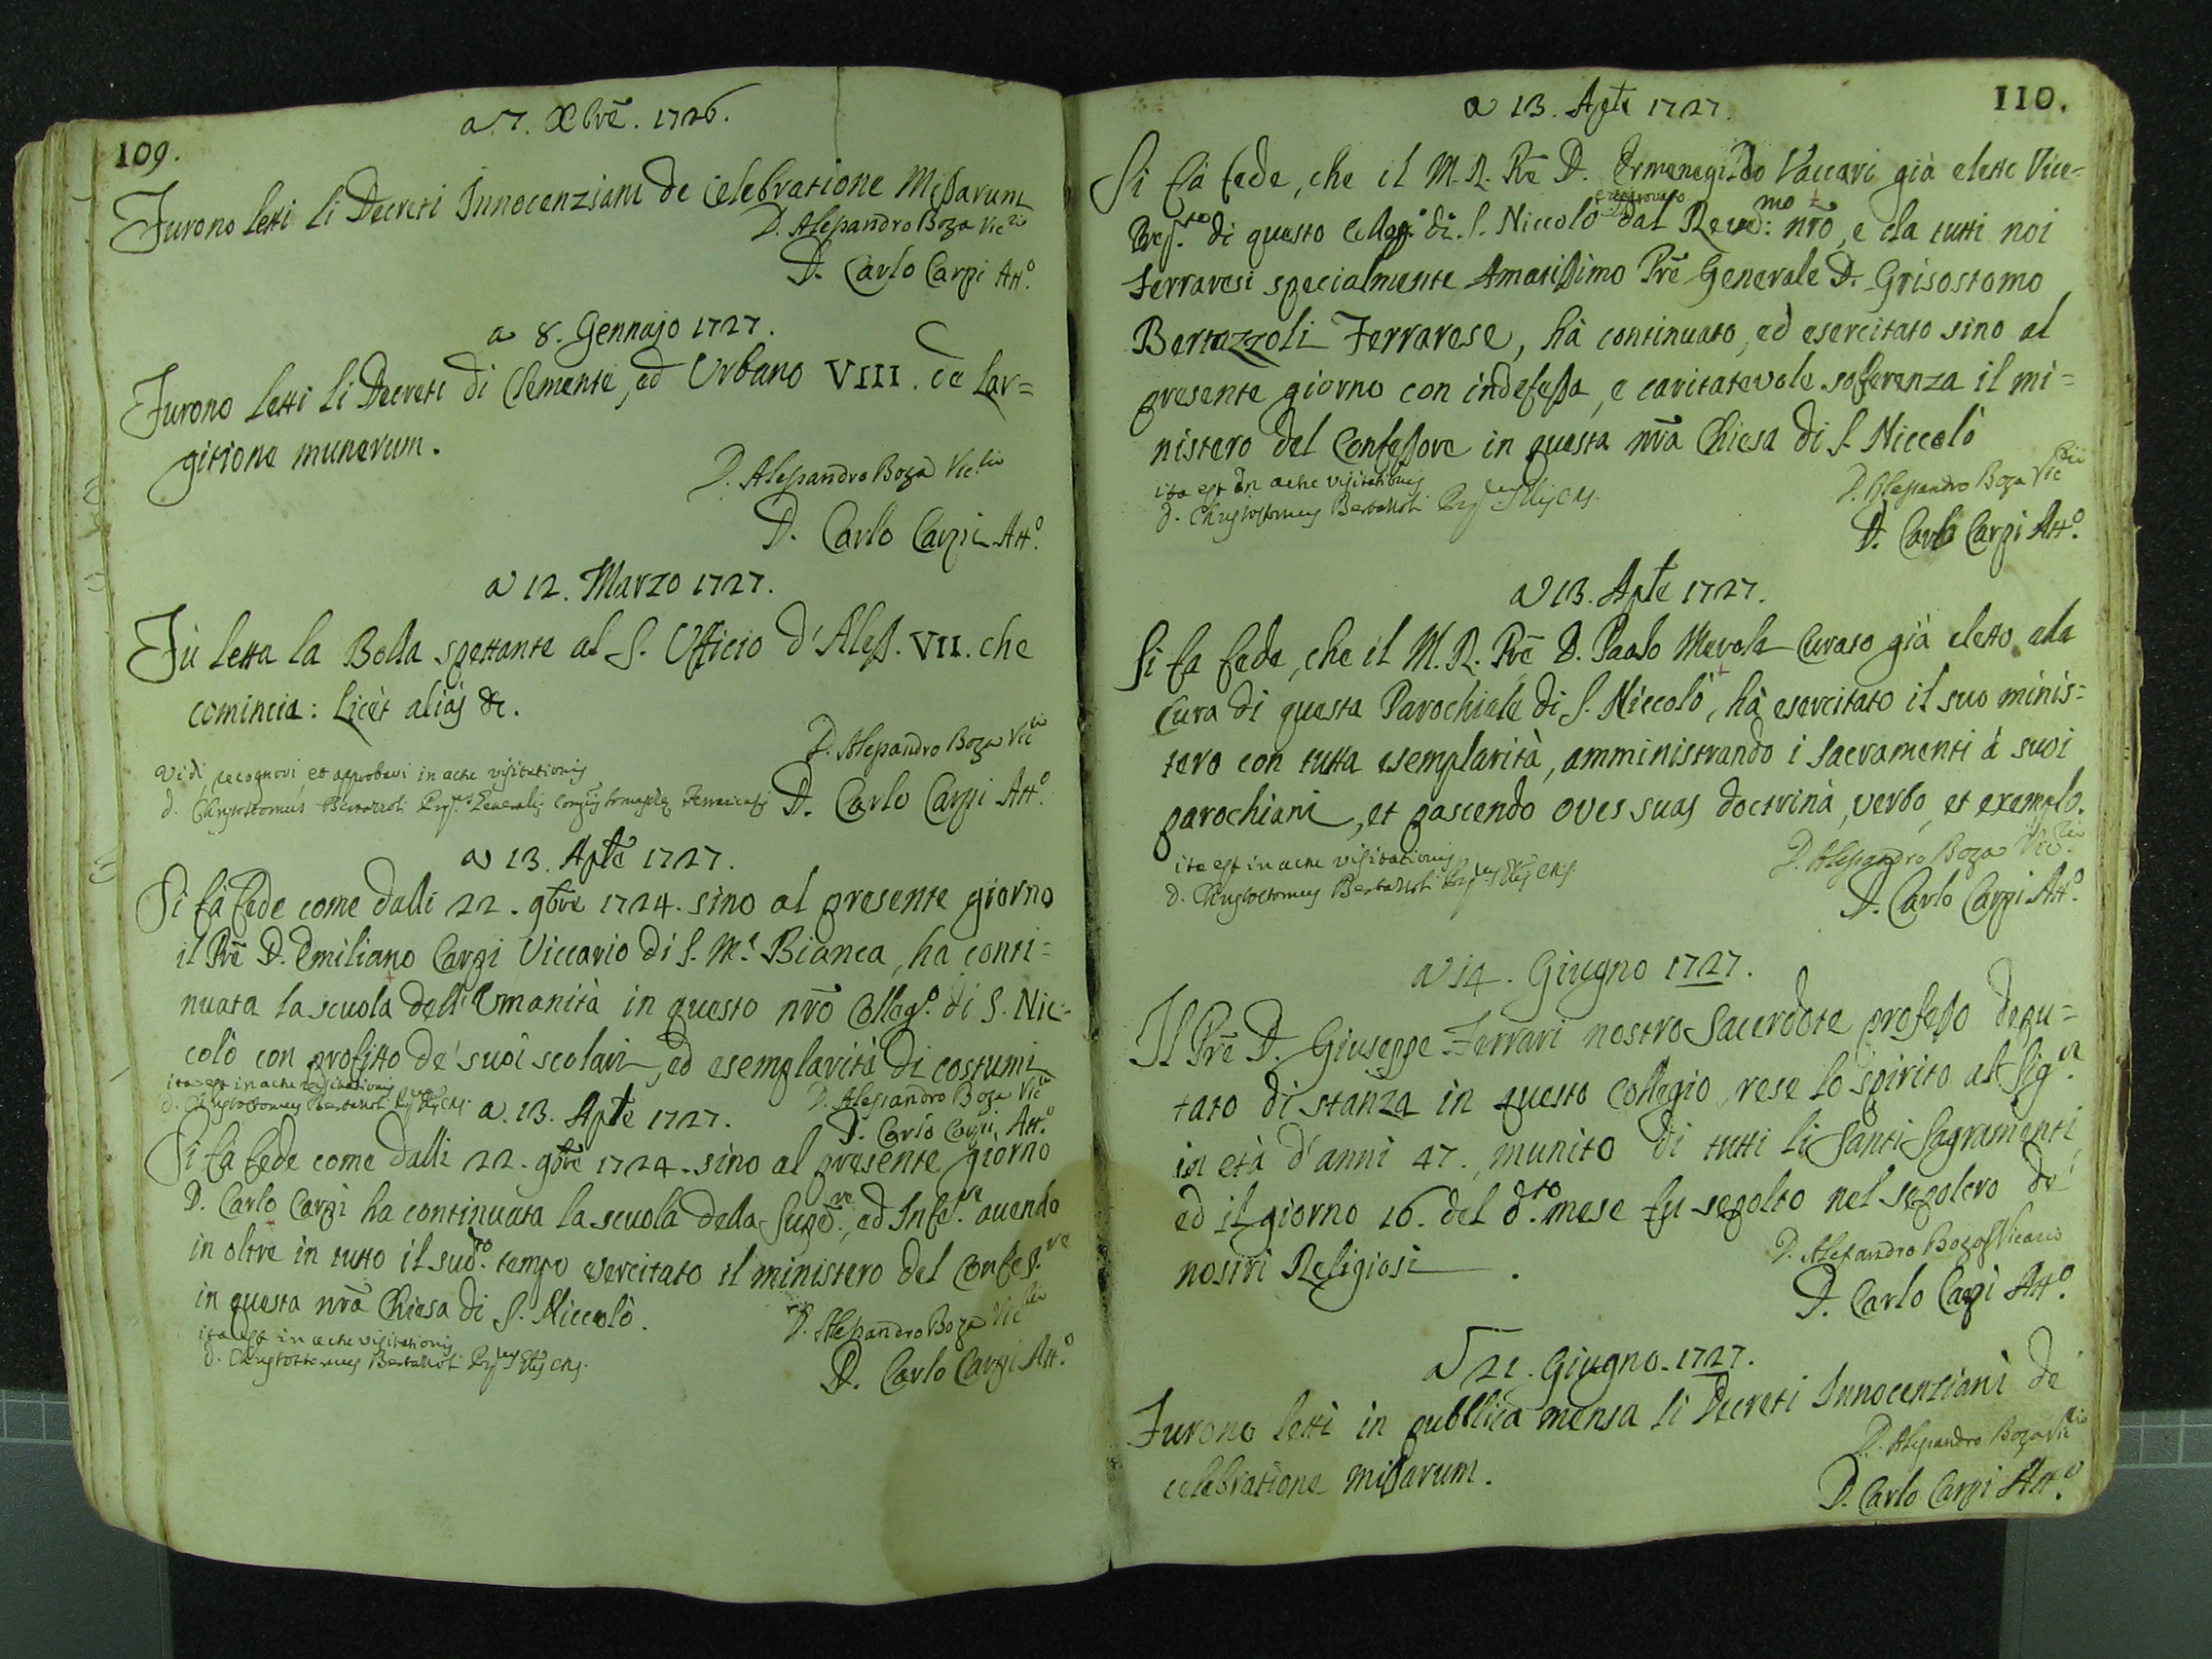 109.
a 7. Xbrē. 1726.
Furono letti li Decreti Innocenziani de Celebratione Missarum
D. Alessandro Boza Vic.rio
D. Carlo Carpi Att.o
a 8. Gennajo 1727.
Furono letti li Decreti di Clemente, ed Urbano VIII. de Lar=
gitione munerum.
D. Alessandro Boza Vic.rio
D. Carlo Carpi Att.o
a 12. Marzo 1727.
Fù letta la Bolla spettante al S. Officio d'Aless. VII. che
comincia: Licèt aliàs &c.
D. Alessandro Boza Vic.rio
Vidi recognovi et approbavi in actu visitationis
d. Chrysostomus Bertazzoli Generalis
D. Carlo Carpi Att.o
a 13. Aple 1727.
Si fà fede come dalli 22. 9bre 1724. sino al presente giorno
il Prē D. Emiliano Carpi Viccario di S. M.a Bianca, ha conti=
nuata la scuola dell'Umanità in questo nrō Colleg.o di S. Nic=
colò con profitto de' suoi scolari, ed esemplarità di costumi
ita est in actu visitationis
D. Alessandro Boza Vic.rio
d. Chrysostomus Bertazzoli
a. 13. Aple 1727.
D. Carlo Carpi Att.o
Si fà fede come dalli 22. 9bre 1724. sino al presente giorno
D. Carlo Carpi ha continuata la scuola della Supe.re, ed Infe.re avendo
in oltre in tutto il sud.to tempo esercitato il ministero del Confess.re
in questa nrā Chiesa di S. Niccolò.
D. Alessandro Boza Vic.rio
ita est in actu visitationis
d. Chrysostomus Bertazzoli
D. Carlo Carpi Att.o
110.
a 13. Aple 1727.
Si fà fede, che il M. R. Prē D. Ermenegildo Vaccari già eletto Vice=
Prep.to di questo Colleg.o di S. Niccolò dal Revd:mo nrō, e da tutti noi
Ferraresi specialmente Amatissimo Prē Generale D. Grisostomo
Bertazzoli Ferrarese, hà continuato, ed esercitato sino al
presente giorno con indefessa, e caritatevole sofferenza il mi=
nistero del Confessore in questa nrā Chiesa di S. Niccolò
ita est in actu visitationis
d. Chrysostomus Bertazzoli
D. Alessandro Boza Vic.rio
D. Carlo Carpi Att.o
a 13. Aple 1727.
Si fa fede, che il M. R. Prē D. Paolo Curato già eletto alla
Cura di questa Parochiale di S. Niccolò, hà esercitato il suo minis=
tero con tutta esemplarità, amministrando i Sacramenti à suoi
parochiani, et pascendo oves suas doctrinà, verbo, et exemplo.
ita est in actu visitationis
d. Chrysostomus Bertazzoli
D. Alessandro Boza Vic.rio
D. Carlo Carpi Att.o
a 14. Giugno 1727.
Il Prē D. Giuseppe Ferrari nostro Sacerdote professo depu=
tato di stanza in questo Collegio, rese lo spirito al Sig.re
in età d'anni 47., munito di tutti li Santi Sagramenti,
ed il giorno 16. del d.to mese fu sepolto nel sepolcro de'
nostri Religiosi.
D. Alessandro Boza Vicario
D. Carlo Carpi Att.o
a 21. Giugno. 1727.
Furono letti in pubblica mensa li Decreti Innocenziani de
celebratione missarum.
D. Alessandro Boza Vic.rio
D. Carlo Carpi Att.o